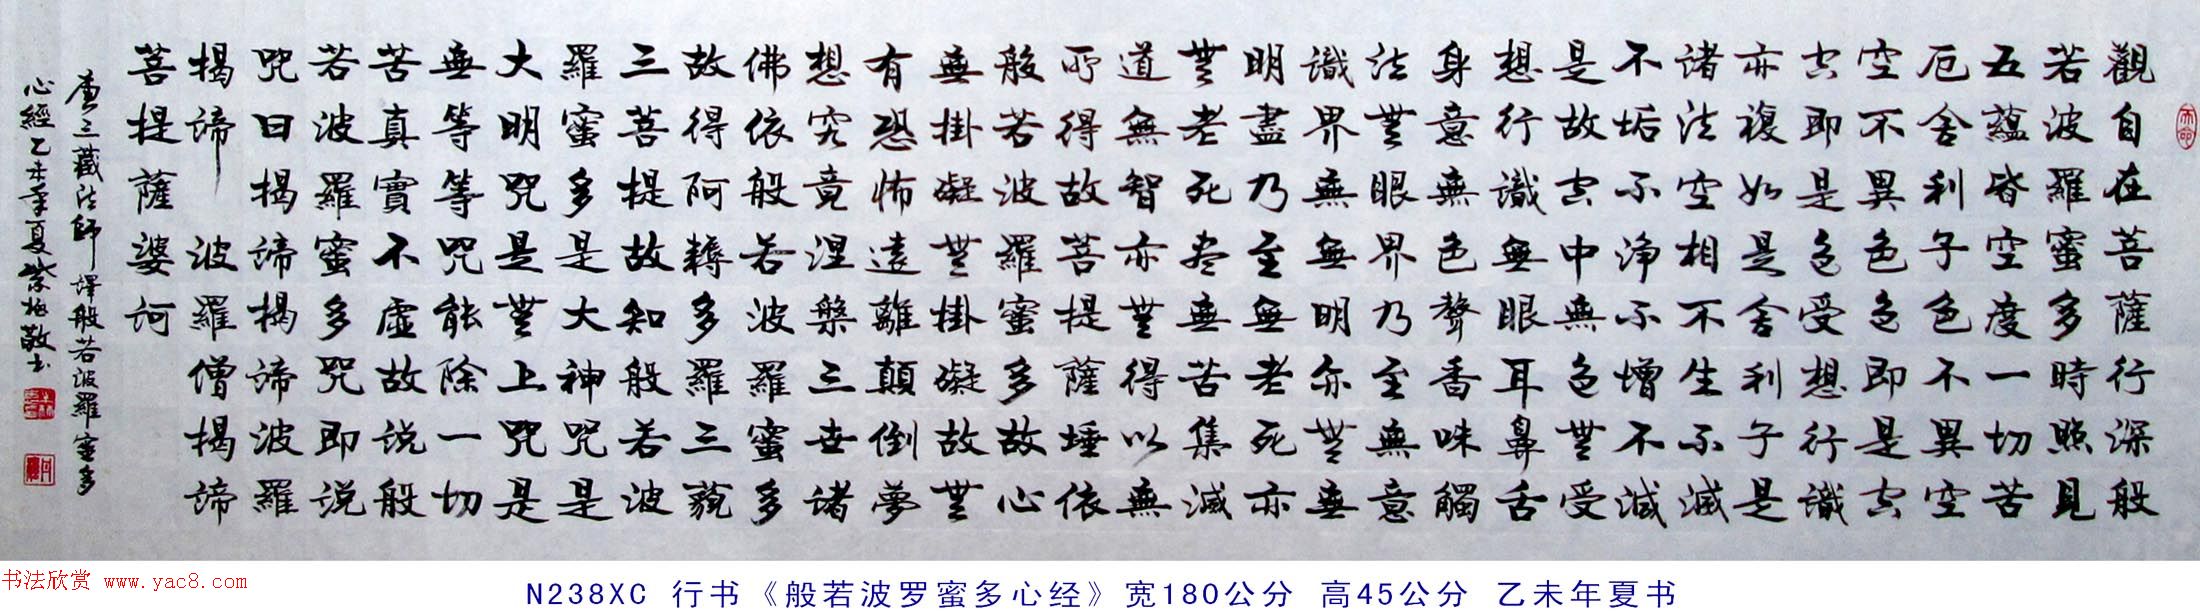 觀自在菩薩行深般
若波羅蜜多時照見
五蘊皆空度一切苦
厄舍利子色不異空
空不異色色即是空
空即是色受想行識
亦複如是舍利子是
諸法空相不生不滅
不垢不淨不增不減
是故空中無色無受
想行識無眼耳鼻舌
身意無色聲香味觸
法無眼界乃至無意
識界無無明亦無無
明盡乃至無老死亦
無老死盡無苦集滅
道無智亦無得以無
所得故菩提薩埵依
般若波羅蜜多故心
無掛礙無掛礙故無
有恐怖遠離顛倒夢
想究竟涅槃三世諸
佛依般若波羅蜜多
故得阿耨多羅三藐
三菩提故知般若波
羅蜜多是大神咒是
大明咒是無上咒是
無等等咒能除一切
苦真實不虛故説般
若波羅蜜多咒即説
咒曰揭諦揭諦波羅
揭諦 波羅僧揭諦
菩提薩婆訶
唐三藏法師譯般若波羅蜜多
心經乙未年夏紫梅敬书
书法欣赏 www.yac8.com
N238XC 行书《般若波罗蜜多心经》宽180公分 高45公分 乙未年夏书